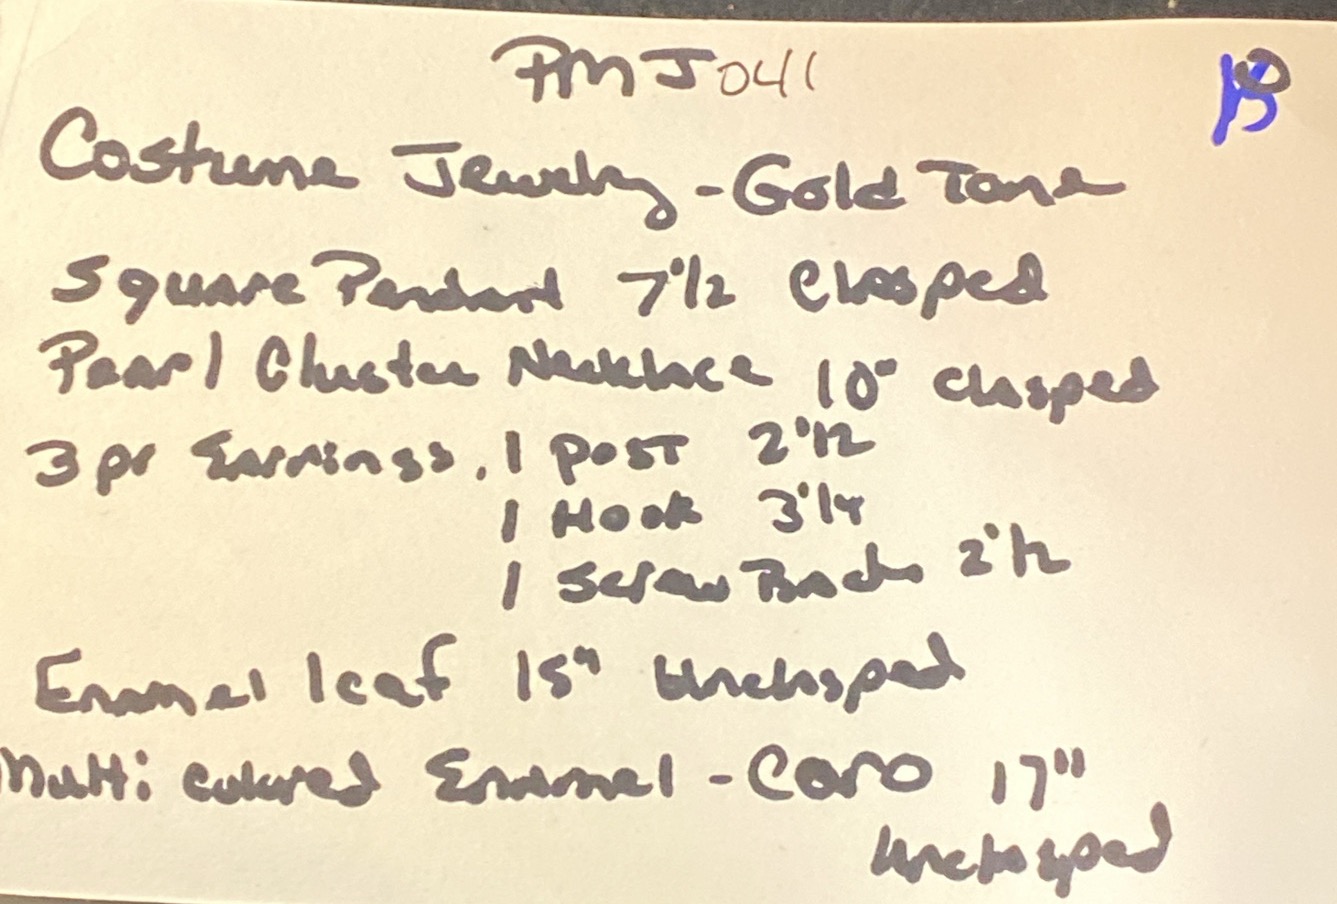 PMJ041
Costume Jewelry - Gold Tone
Square Pendant 7"1/2 Clasped
Pearl Cluster Necklace 10" Clasped
3 pr Earrings. 1 post 2"1/2
1 Hook 3"1/4
1 Screw Back 2"1/2
Enamel leaf 15" Unclasped
Multi colored Enamel - Coro 17"
Unclasped